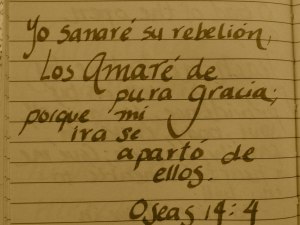 Yo sanaré su rebelión,
Los Amaré de
pura gracia;
porque mi
ira se
apartó de
ellos.
Oseas 14:4